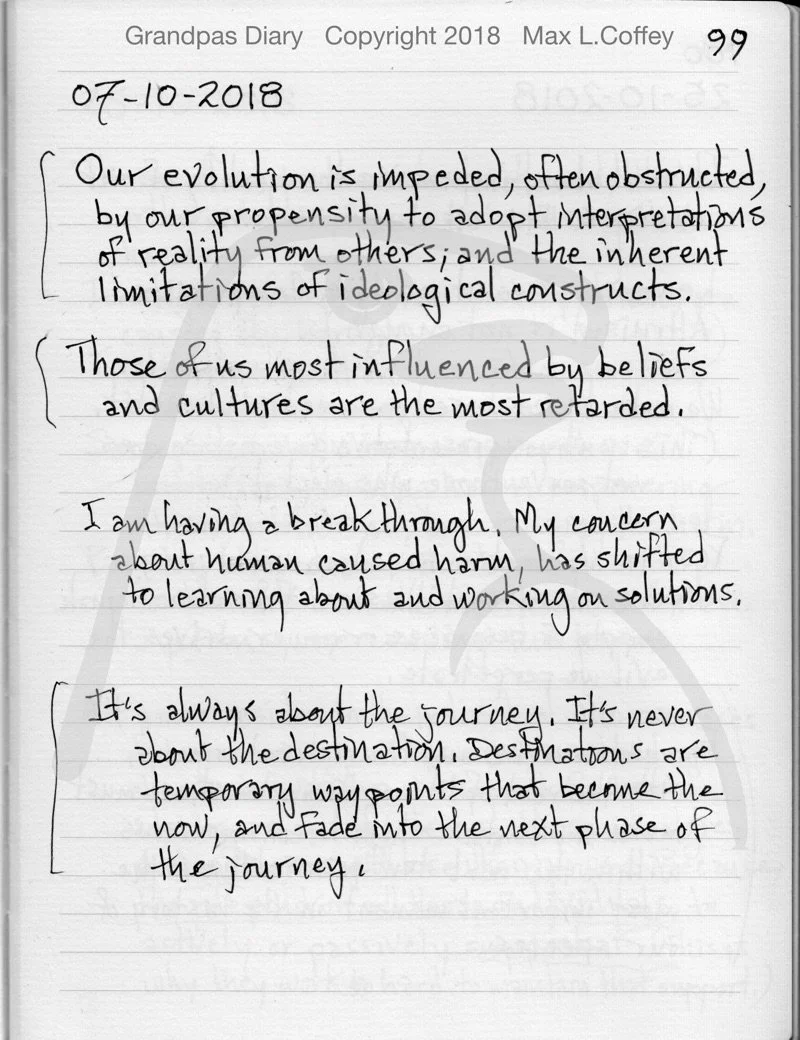 Grandpas Diary Copyright 2018 Max L.Coffey 99
07-10-2018
Our evolution is impeded, often obstructed,
by our propensity to adopt interpretations
of reality from others; and the inherent
limitations of ideological constructs.
Those of us most influenced by beliefs
and cultures are the most retarded.
I am having a breakthrough. My concern
about human caused harm, has shifted
to learning about and working on solutions.
It's always about the journey. It's never
about the destination. Destinations are
temporary waypoints that become the
now, and fade into the next phase of
the journey.